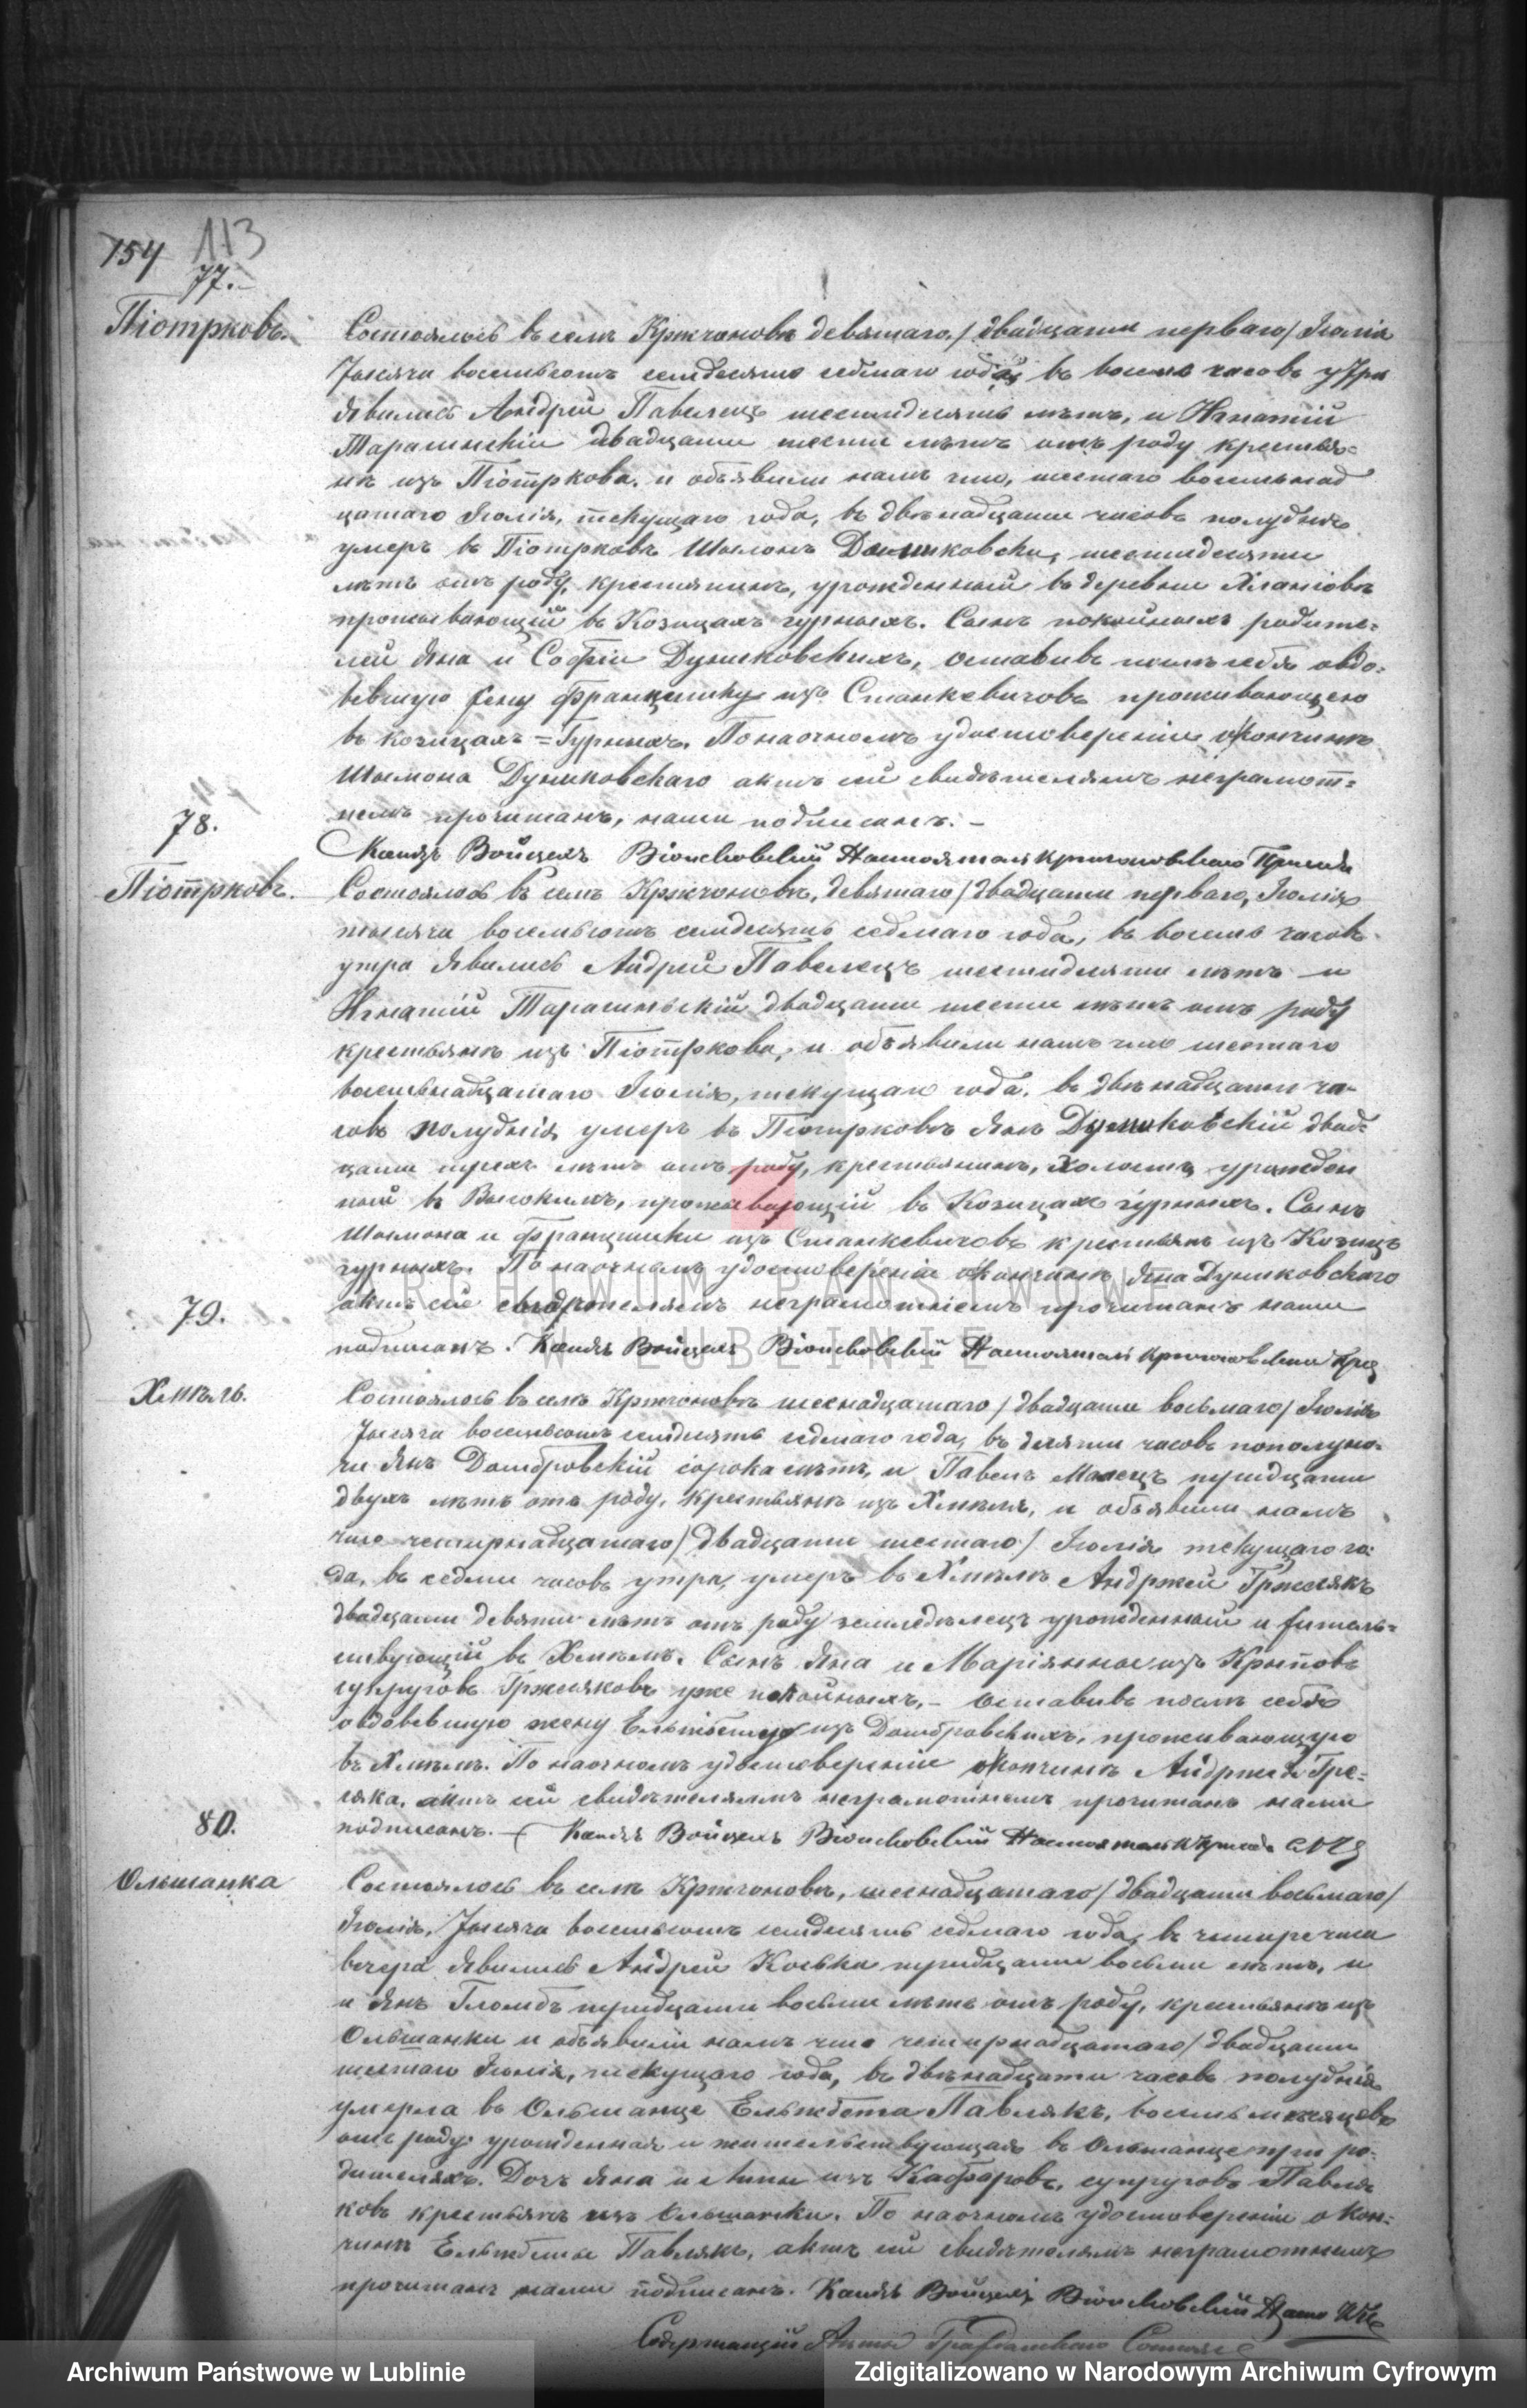 154 113
77.
Піотрковъ.
Состоялось въ селѣ Кржчоновѣ девятаго / двадцати перваго / Іюля
Тысяча восемьсотъ семдесятъ седмаго года въ восемь часовъ утра
явились Андрей Павелецъ шестидесяти лѣтъ, и Игнатій
Тарашинскій двадцати шести лѣтъ отъ роду крестья=
нѣ изъ Піотркова. и объявили намъ что, шестаго восемьнад
цатаго Іюлія, текущаго года, въ двѣнадцати часовъ полудня
умеръ въ Піотрковѣ Шимонъ шестидесяти
лѣтъ отъ роду, крестянинъ, урожденный въ деревни
проживающій въ Козицахъ гурныхъ. Сынъ покойныхъ родите=
лей Яна и Софіи Дуниковскихъ, оставивъ послѣ себя овдо=
вевшую жену Францишку изъ Станкевичовъ проживающею
въ козицахъ=Гурныхъ. По наочномъ удостовереніи о кончинѣ
Шимона Дуниковскаго актъ сей свидѣтелямъ неграмот=
нымъ прочитанъ, нами подписанъ. –
Ксендзъ Войцехъ Настоятель Кржчоновскаго
78.
Піотрковъ.
Состоялось въ селѣ Кржчоновѣ, девятаго / двадцати перваго, Іюлія
тысяча восемьсотъ семдесятъ седмаго года, въ восемь часовъ
утра явились Андрей Павелецъ шестидесяти лѣтъ и
Игнатій Тарашинскій двадцати шести лѣтъ отъ роду
крестьянѣ изъ Піотркова, и объявили намъ что шестаго
восемьнадцатаго Іюлія, текущаго года, въ двѣнадцати ча-
совъ полуднія умеръ въ Піотрковѣ Янъ Дуниковскій двад=
цати трехъ лѣтъ отъ роду, крестьянинъ, холостъ урожден
ный въ проживающій въ Козицахъ гурныхъ. Сынъ
Шимона и Францишки изъ Станкевичовъ крестьянъ изъ Козицъ
гурныхъ. По наочномъ удостовереніи о кончинѣ Яна Дуниковскаго
актъ сей свидѣтелямъ неграмотнымъ прочитанъ нами
подписанъ. Ксендзъ Войцехъ Настоятель
79.
Хмѣль.
Состоялось въ селѣ Кржчоновѣ шеснадцатаго / двадцати восьмаго / Іюлія
Тысяча восемьсотъ семдесятъ седмаго года, въ десяти часовъ пополуно=
чи Янъ Домбровскій сорока лѣтъ, и Павелъ тридцати
двухъ лѣтъ отъ роду, крестьянѣ изъ Хмѣля, и объявили намъ
что четырнадцатаго / двадцати шестаго / Іюлія текущаго го=
да, въ седми часовъ утра, умеръ въ Хмѣлѣ Андржей Гржесякъ
двадцати девяти лѣтъ отъ роду земледѣлецъ урожденный и житель=
ствующій въ Хмѣлѣ. Сынъ Яна и Маріянны изъ
супруговъ Гржесяковъ уже покойныхъ, – оставивъ послѣ себя
овдовевшую жену Ельжбету изъ Домбровскихъ, проживающую
въ Хмѣлѣ. По наочномъ удостовереніи о кончинѣ Андржея Грже=
сяка, актъ сей свидѣтелямъ неграмотнымъ прочитанъ нами
подписанъ. – Ксендзъ Войцехъ Настоятель
80.
Ольшанка
Состоялось въ селѣ Кржчоновѣ, шеснадцатаго / двадцати восьмаго /
Іюлія, Тысяча восемьсотъ семдесятъ седмаго года, въ четыре часа
вечера явились Андрей Коська тридцати восьми лѣтъ, и
и Янъ Гломбъ тридцати восьми лѣтъ отъ роду, крестьянѣ изъ
Ольшанки и объявили намъ что четырнадцатаго / двадцати
шестаго Іюлія, текущаго года, въ двѣнадцати часовъ полуднія
умерла въ Ольшанце Ельжбета Павлякъ, восемь мѣсяцовъ
отъ роду урожденная и жительствующая въ Ольшанце при ро=
дителяхъ. Дочь Яна и Анны изъ Кафаровъ, супруговъ Павля
ковъ крестьянъ изъ Ольшанки. По наочномъ удостовереніи о кон=
чинѣ Ельжбеты Павлякъ, актъ сей свидѣтелямъ неграмотнымъ
прочитанъ нами подписанъ. Ксендзъ Войцехъ
Содержащій Акты Гражданскаго Состоянія
ARCHIWUM PAŃSTWOWE
W LUBLINIE
Archiwum Państwowe w Lublinie
Zdigitalizowano w Narodowym Archiwum Cyfrowym